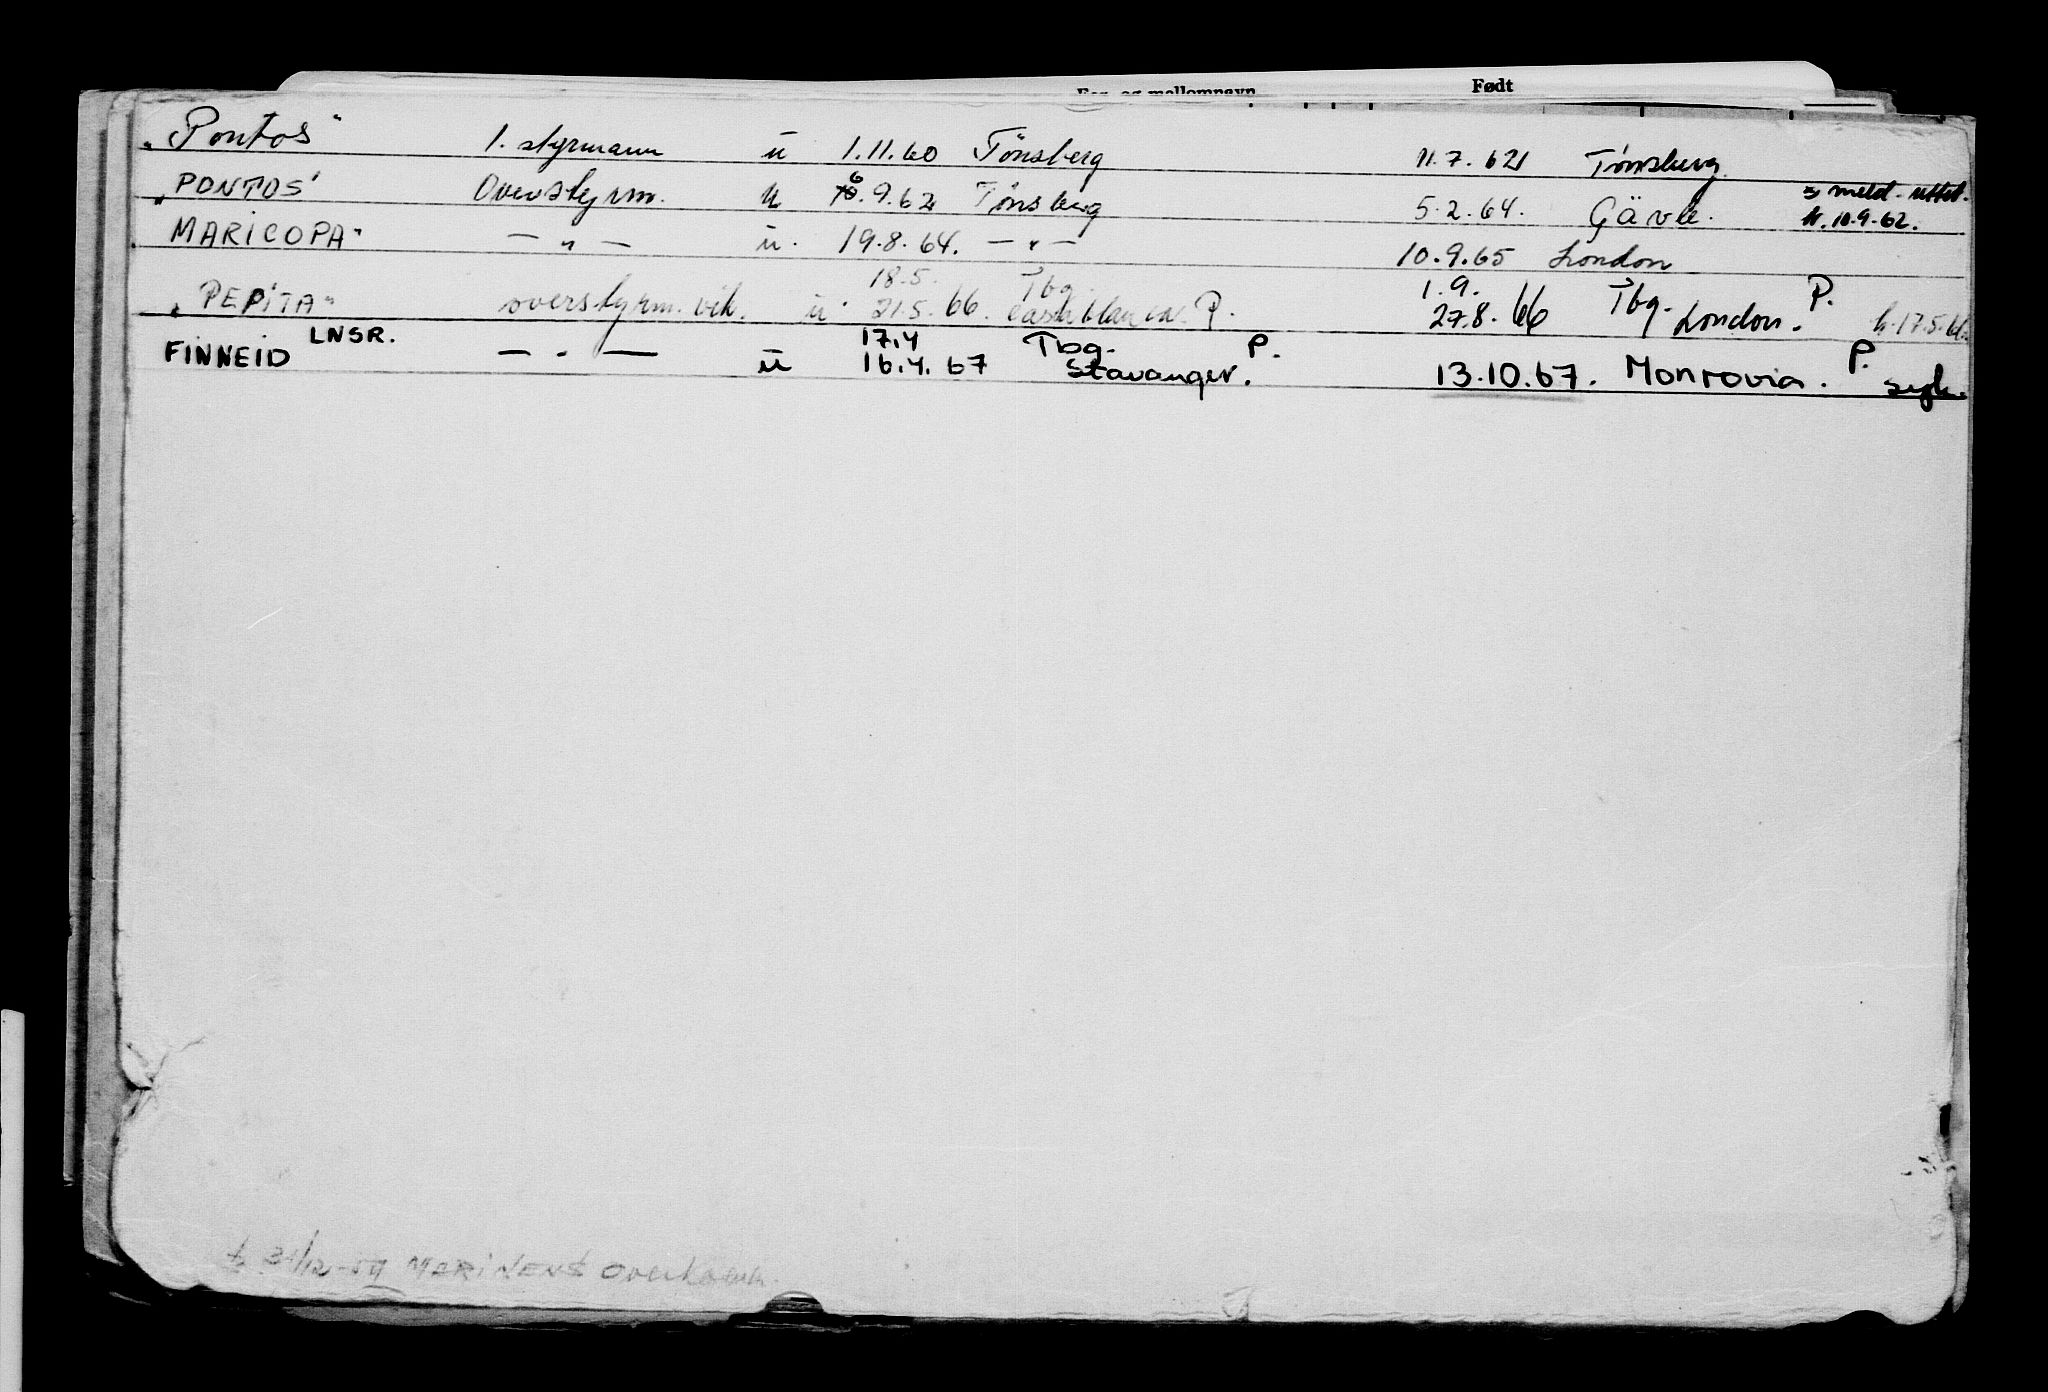 For- og mellomnavn Født
"Pontos" 1. styrmann u 1.11.60 Tönsberg 11.7.62 Tönsberg
"PONTOS" Overstyrm. u 6.9.62 Tönsberg 5.2.64. Gävle. meld. utst. h. 10.9.62.
"MARICOPA" — " — u. 19.8.64. — " — 10.9.65 London
18.5. Tbg. 1.9. Tbg. P.
"PEPITA" overstyrm. vik. u. 21.5.66. Casablanca. P. 27.8.66 London. h. 17.5.66.
LNSR. 17.4 Tbg. P.
FINNEID — " — u 16.4.67 Stavanger. 13.10.67. Monrovia. P. syk.
31/12-59 MARINENS Overkom.